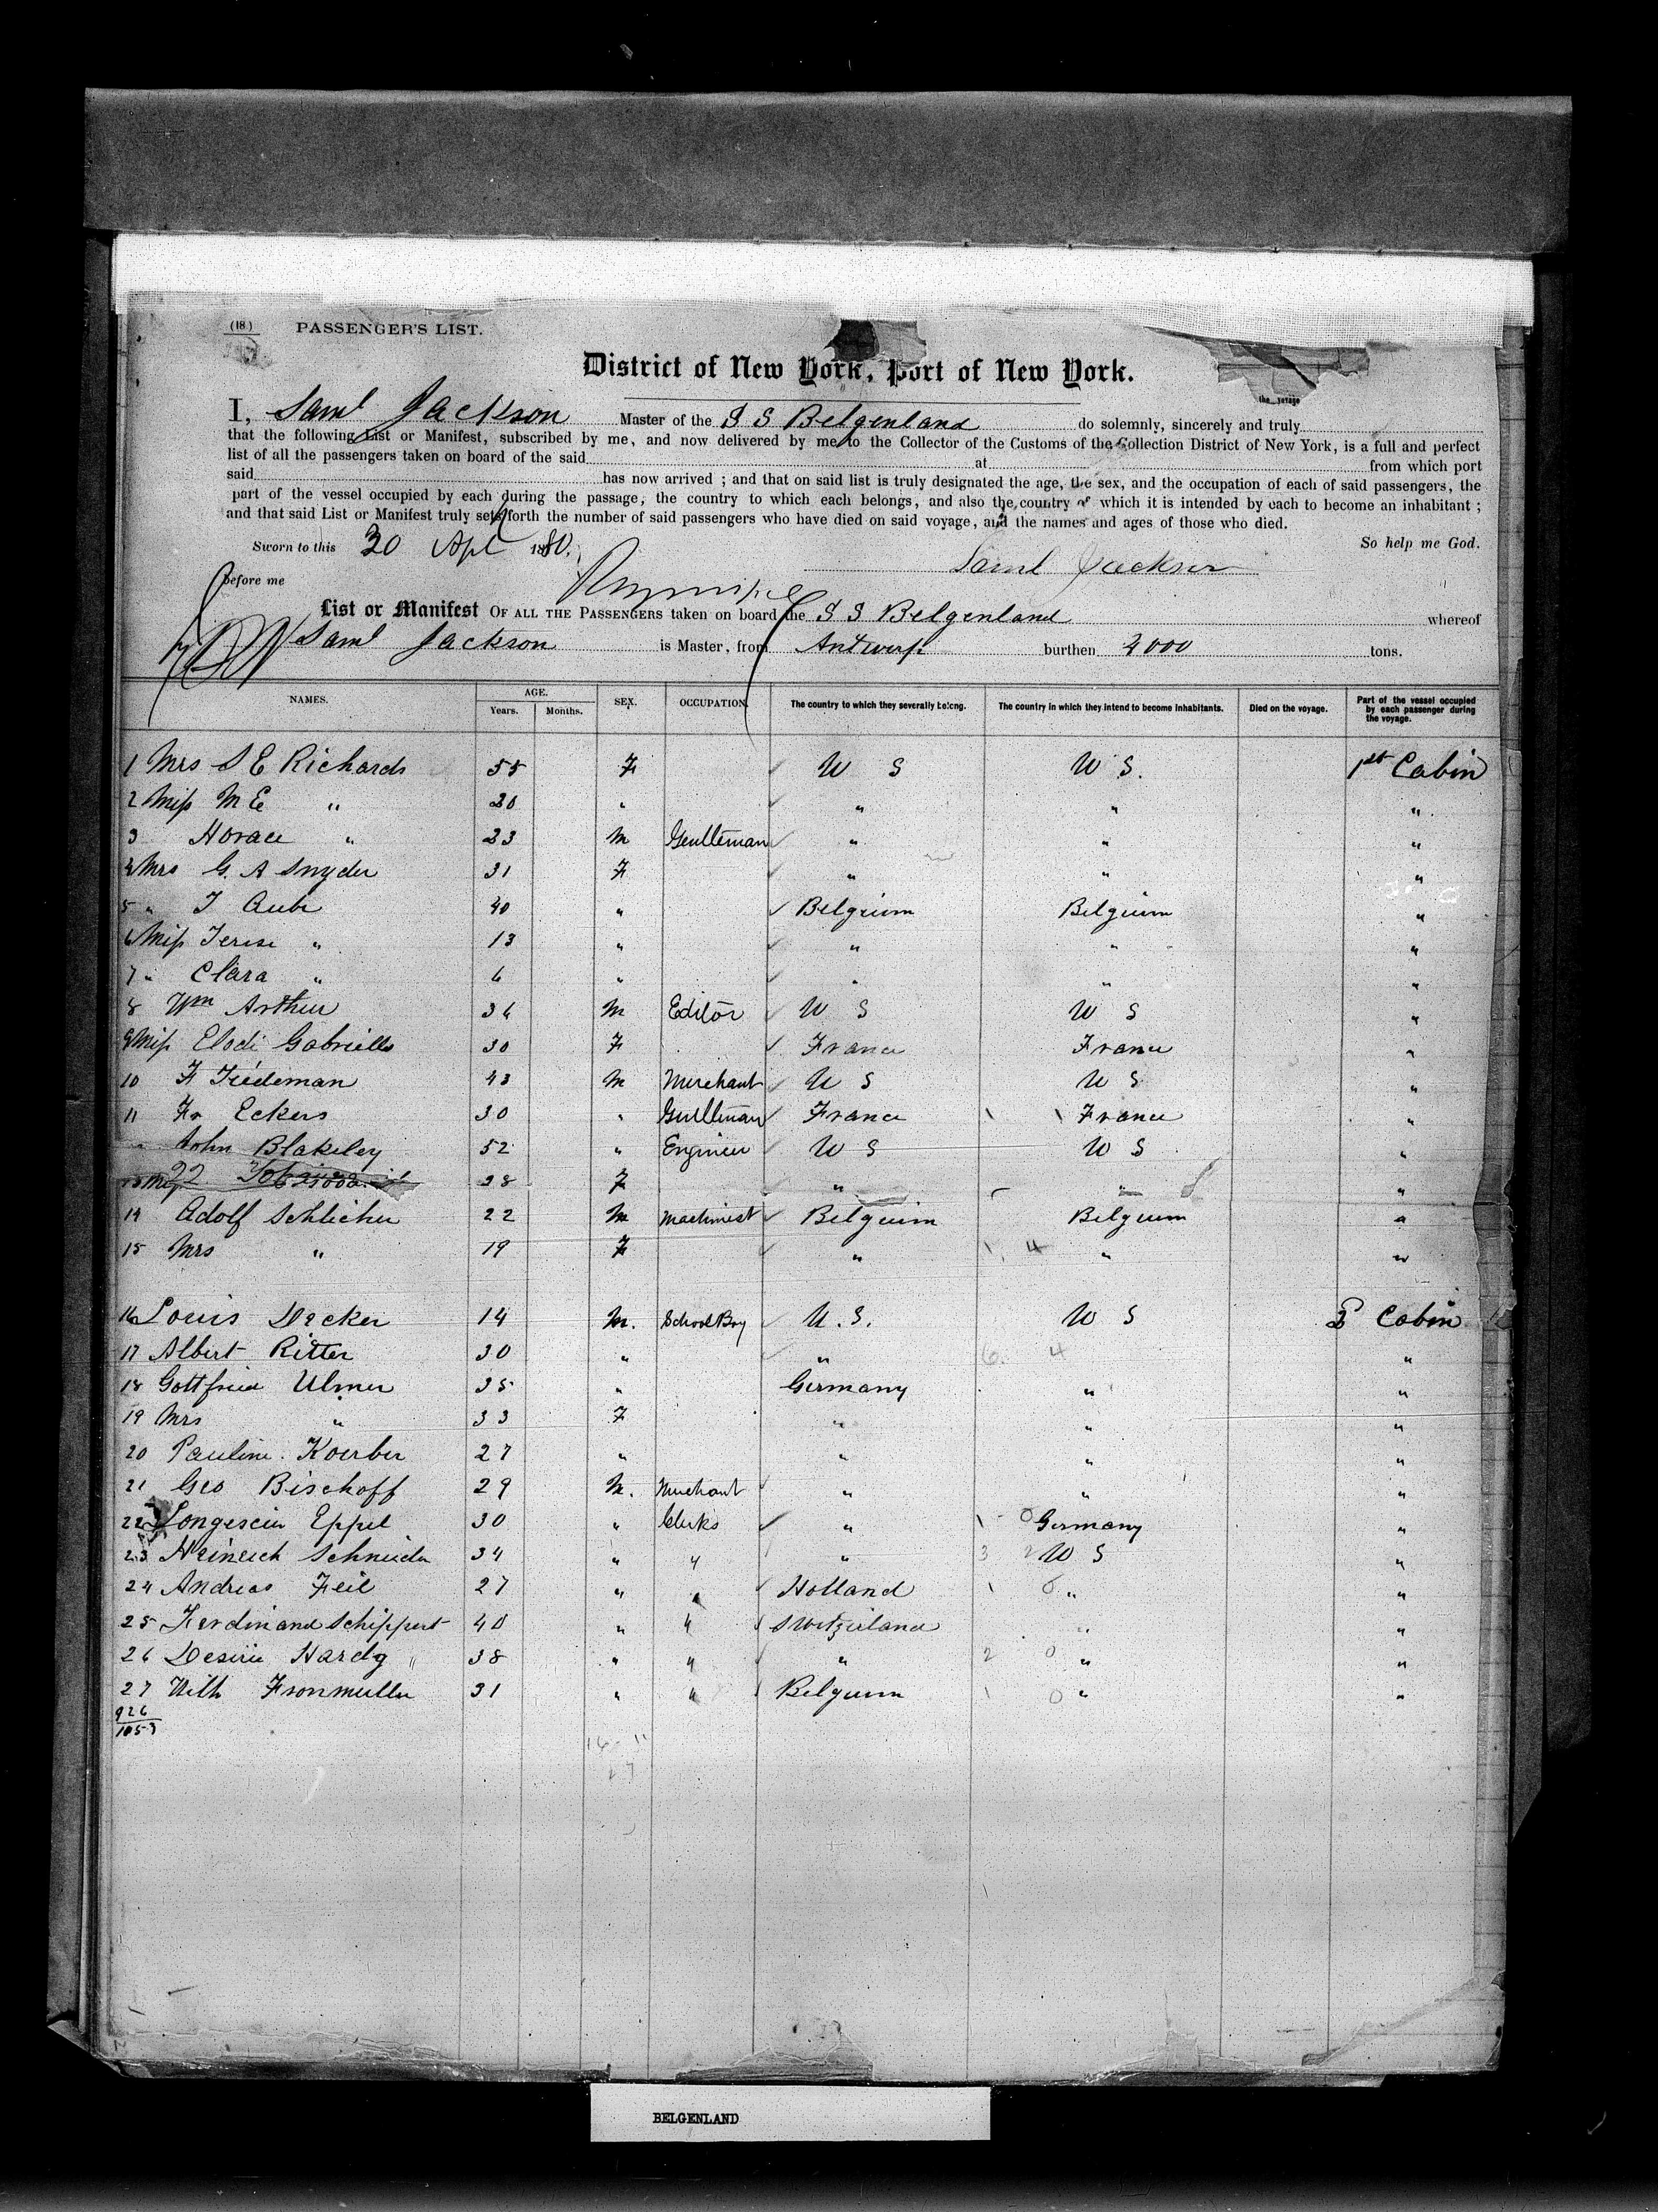 (18.) PASSENGER'S LIST.
District of New York, Port of New York.
the voyage
I, Saml Jackson Master of the S S Belgenland do solemnly, sincerely and truly
that the following List or Manifest, subscribed by me, and now delivered by me to the Collector of the Customs of the Collection District of New York, is a full and perfect
list of all the passengers taken on board of the said at from which port
said has now arrived ; and that on said list is truly designated the age, the sex, and the occupation of each of said passengers, the
part of the vessel occupied by each during the passage, the country to which each belongs, and also the country of which it is intended by each to become an inhabitant ;
and that said List or Manifest truly sets forth the number of said passengers who have died on said voyage, and the names and ages of those who died.
Sworn to this 30 Apl 1880. So help me God.
Saml Jackson
before me
List or Manifest OF ALL THE PASSENGERS taken on board the S S Belgenland whereof
Saml Jackson is Master, from Antwerp burthen 2000 tons.
NAMES. AGE. Years. Months. SEX. OCCUPATION. The country to which they severally belong. The country in which they intend to become inhabitants. Died on the voyage. Part of the vessel occupied by each passenger during the voyage.
1 Mrs S E Richards 55 F U S U S. 1st Cabin
2 Miss M E " 20 " " " "
3 Horace " 23 M Gentleman " " "
4 Mrs G. A Snyder 31 F " " "
5 " T Aube 40 " Belgium Belgium "
6 Miss Terese " 13 " " " "
7 " Clara " 6 " " " "
8 Wm Arthur 36 M Editor U S U S "
9 Miss Elodi Gabrielle 30 F France France "
10 F Tiedeman 43 M Merchant U S U S "
11 Fr Eckers 30 " Gentleman France France "
" John Blakeley 52 " Engineer U S U S "
13 Miss 28 F " " "
14 Adolf Schlicher 22 M Machinest Belguim Belguim "
15 Mrs " 19 F " " "
16 Louis Decker 14 M. School Boy U. S. U S 2 Cabin
17 Albert Ritter 30 " " "
18 Gottfried Ulmer 35 " Germany " "
19 Mrs " 33 F " " "
20 Pauline Koerber 27 " " " "
21 Geo Bischoff 29 M. Merchant " " "
22 Eppel 30 " Clerks " Germany "
23 Heinrich Schneider 34 " " " U S "
24 Andreas Feil 27 " " Holland " "
25 Ferdinand Schippert 40 " " Switzerland " "
26 Desirie Hardy 38 " " " " "
27 Wilh Fronmuller 31 " " Belguim " "
926
1053
BELGENLAND